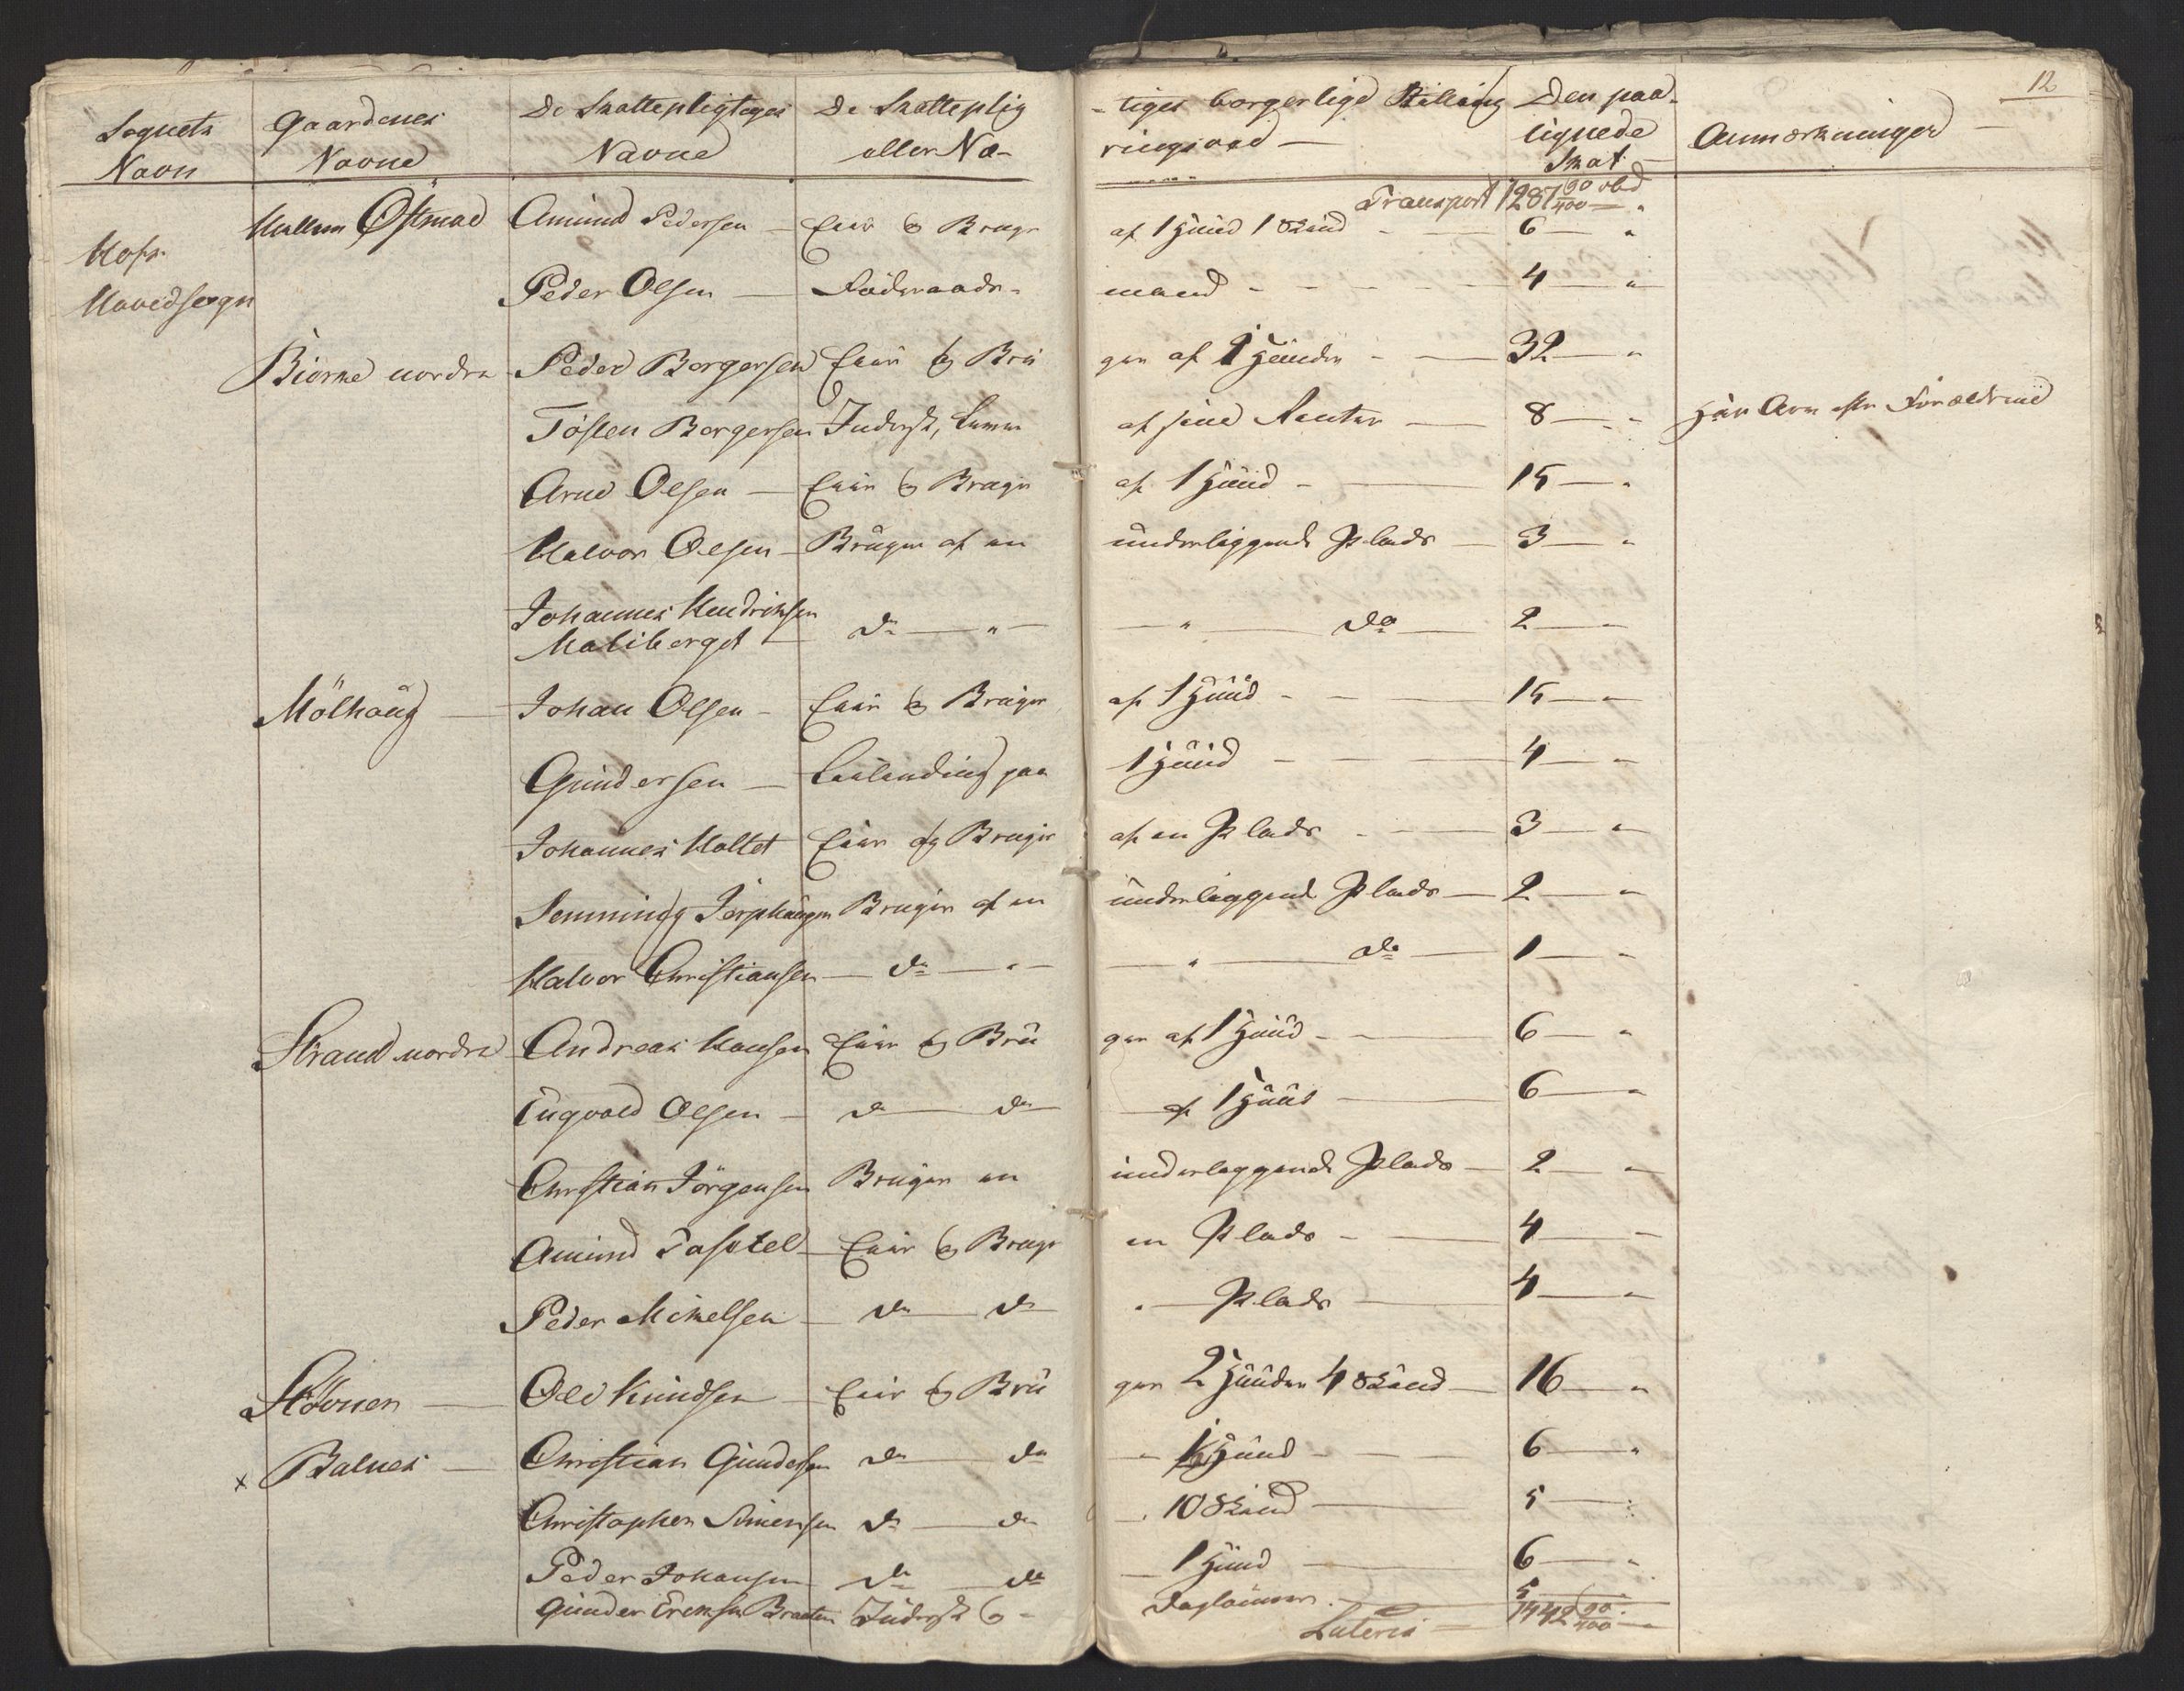 Sognets Navn | Gaardenes Navne | De Skattepligtiges Navne | De Skattepligtiges borgerlige Stilling eller Næringsvei | Den paalignede Skat | Anmærkninger
12
Transport 1287 90/100 "
Hofs Hovedsogn | Østmoe | Amund Pedersen — | Eier og Bruger af 1 Huud 1 Skind | 6 — "
Peder Olsen — | Föderaadsmand | 4 — "
Biørke nordre | Peder Borgersen | Eier og Bruger af 2 Huuder | 32 — "
Tösten Borgersen | Inderst, Lever af sine Renter — | 8 — " | Har Arv efter Forældrene
Arne Olsen — | Eier og Bruger af 1 Huud | 15 — "
Halvor Olsen — | Bruger af en underliggende Plads | 3 — "
Johannes Hendriksen | do — " — do | 2 — "
Mölhaug — | Johan Olsen — | Eier og Bruger af 1 Huud | 15 — "
Gundersen — | Leilending paa 1 Huud | 4 — "
Johannes Holtet | Eier og Bruger af en Plads | 3 — "
Semming | Bruger af en underliggende Plads | 2 — "
Halvor Christiansen | do — " — do | 1 — "
Strand nordre | Andreas Hansen | Eier og Bruger af 1 Huud | 6 — "
Engvold Olsen — | do do af 1 Huud | 6 — "
Christian Jörgensen | Bruger en underliggende Plads | 2 — "
Amund | Eier og Bruger en Plads | 4 —
Peder Mikelsen | do do " Plads | 4 — "
Stövnen — | Ole Knudsen | Eier og Bruger 2 Huuder 4 Skind | 16 — "
x Balnes — | Christian Gundersen | do do Huud | 6 — "
Christopher Simensen | do do 10 Skind | 5 — "
Peder Johansen | do do 1 Huud | 6 — "
Gunder Eriksen Braaten | Inderst og Daglönner | 5
Lateris 1442 90/100